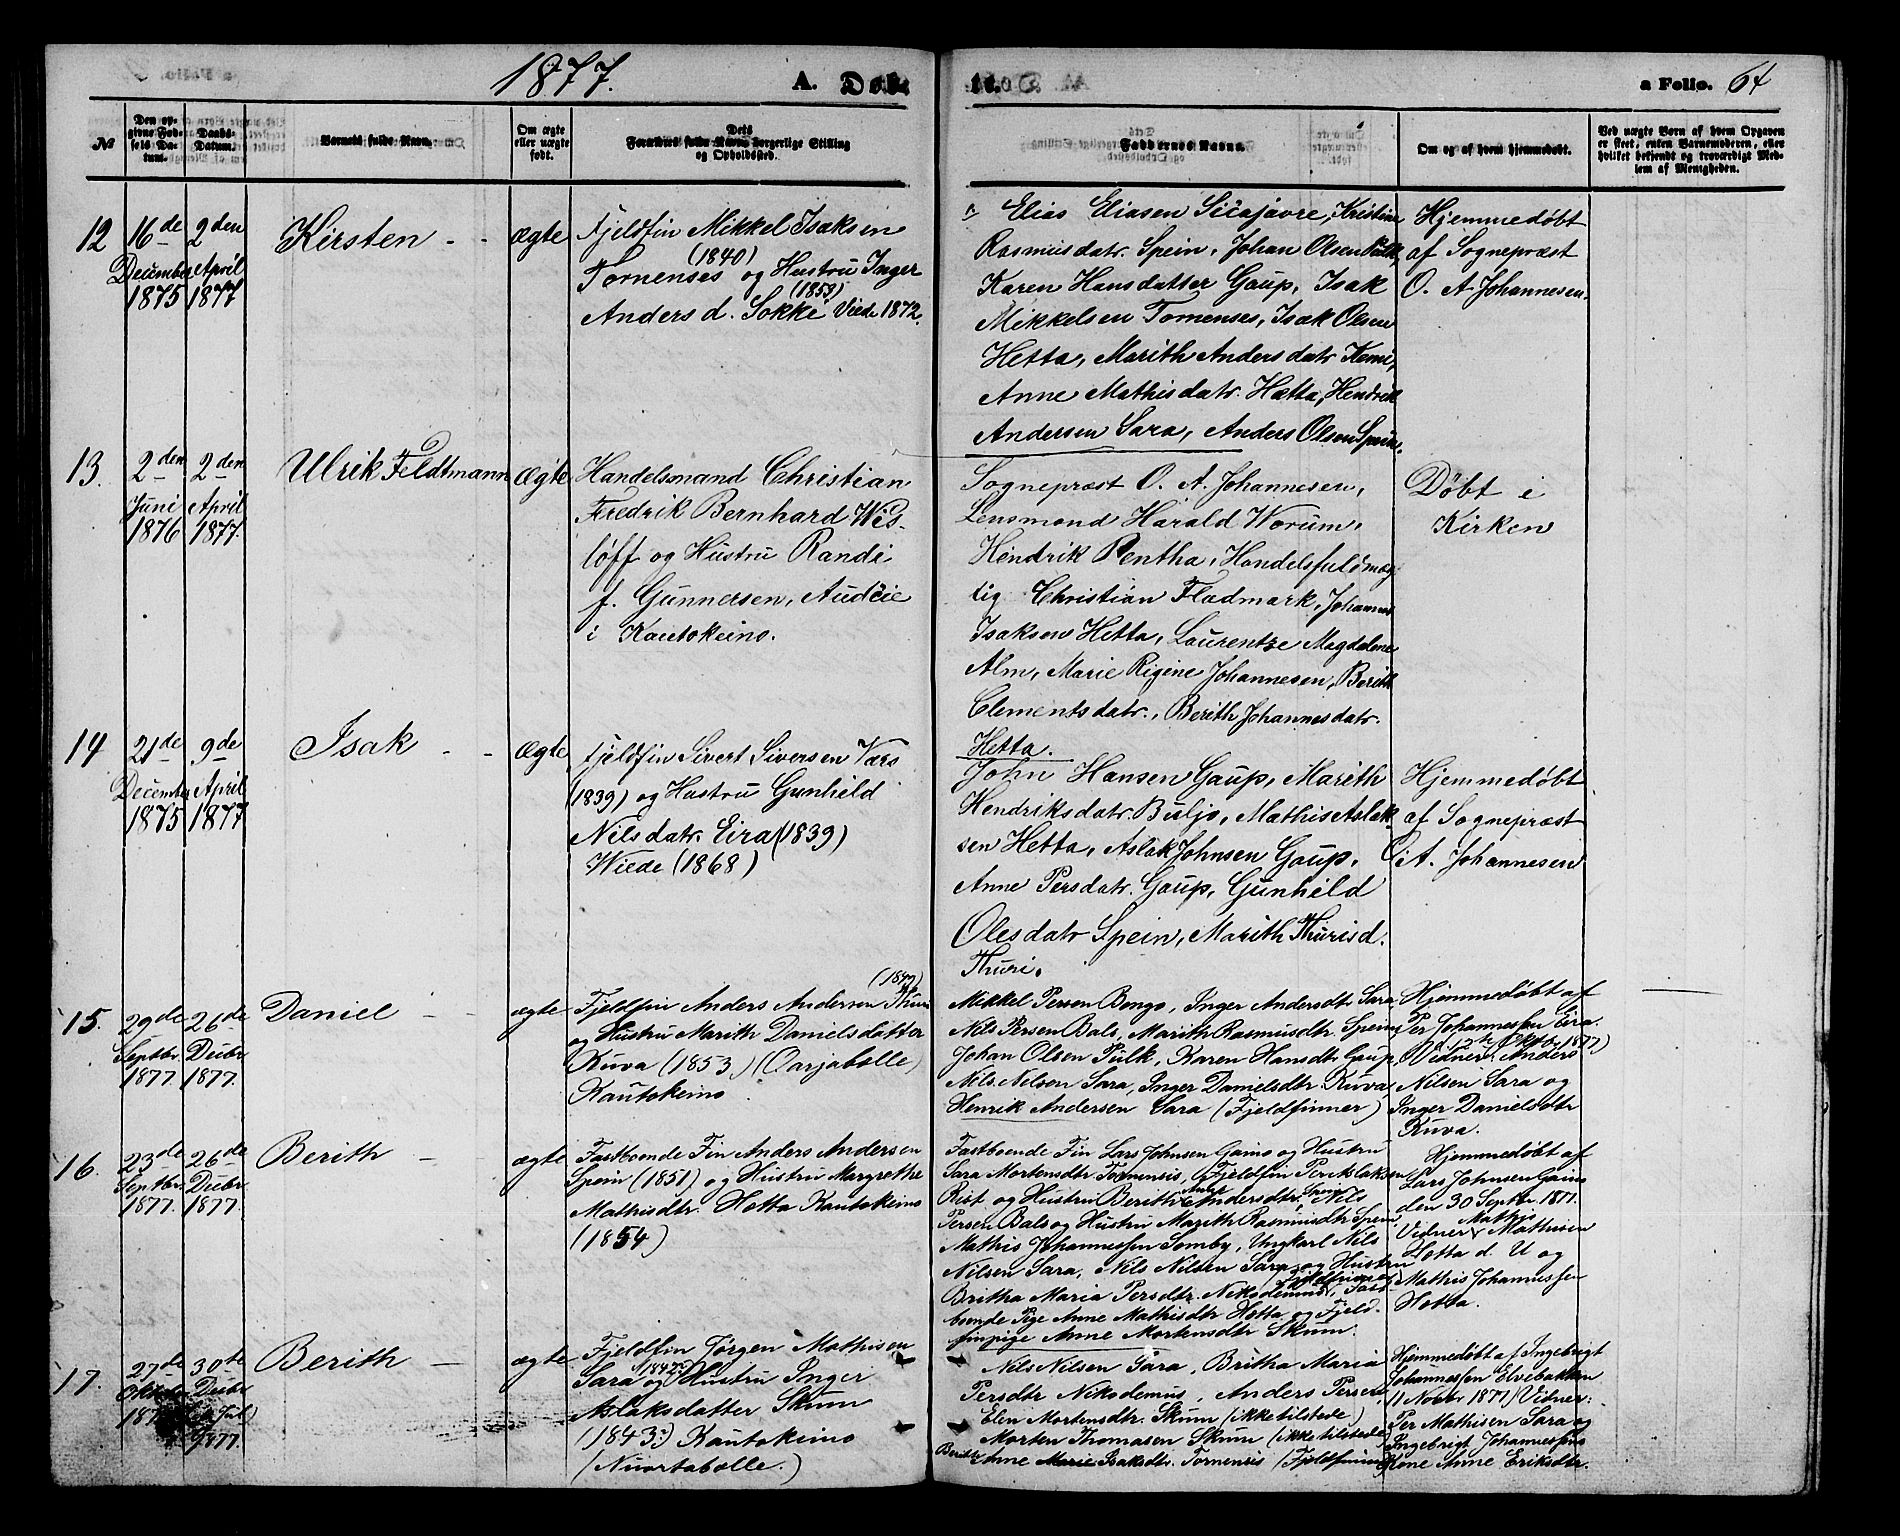 1877.
A. Døb
te.
a Folio. 64
№
Den op-
givne Fød-
sels Da-
tum.
Daabs-
Datum.
Barnets fulde Navn.
Om ægte
eller uægte
født.
Dets
Forældres fulde Navn, borgerlige Stilling
og Opholdssted.
Faddernes Navne.
Om og af hvem hjemmedøbt.
Ved uægte Børn af hvem Opgaven
er skeet, enten Barnemoderen, eller
hvilket bekjendt og troværdigt Med-
lem af Menigheden.
12
16de
December
1875
2den
April
1877
Kirsten
ægte
Fjeldfin Mikkel Isaksen
(1840)
Tornenses og Hustru Inger
(1853)
Anders d. Sokki Viede 1872.
Elias Eliasen Sicajavre, Kristine
Rasmusdatr. Spein, Johan Olsen Pulk,
Karen Hansdatter Gaup, Isak
Mikkelsen Tornenses, Isak Olsen
Hetta, Marith Andersdatr Kemi,
Anne Mathisdatr. Hætta, Hendrik
Andersen Sara, Anders Olsen Spein.
Hjemmedøbt
af Sognepræst
O. A. Johannesen.
13.
2den
Juni
1876
2den
April
1877.
Ulrik Feldtmann
Ægte
Handelsmand Christian
Fredrik Bernhard Wis-
løff og Hustru Randi
f. Gunnersen, Audeie
i Kautokeino.
Sognepræst O. A. Johannesen,
Lensmand Harald Worum,
Hendrik Pentha, Handelsfuldmæg-
tig Christian Fladmark, Johannes
Isaksen Hetta, Laurentze Magdalene
Alm, Marie Rigine Johannesen, Berith
Clementsdatr., Berith Johannesdatr.
Hetta.
Døbt i
Kirken
14
21de
December
1875
9de
April
1877
Isak
Ægte
Fjeldfin Sivert Siversen Vars
(1839) og Hustru Gunhild
Nilsdatr. Eira (1839)
Wiede (1868)
John Hansen Gaup, Marith
Hendriksdatr. Buljo, Mathis Aslak-
sen Hetta, Aslak Johnsen Gaup,
Anne Persdatr. Gaup, Gunhild
Olesdatr Spein, Marith Thurisd.
Thuri.
Hjemmedøbt
af Sognepræst
O. A. Johannesen
15.
29de
Septbr.
1877
26de
Decbr
1877.
Daniel
ægte
(1849)
Fjeldfin Anders Andersen Thuri
og Hustru Marith Danielsdatter
Kuva (1853) (Oarjabelle)
Kautokeino
Mikkel Persen Bongo, Inger Andersdtr Sara,
Nils Persen Bals, Marith Rasmusdtr. Spein,
Johan Olsen Pulk, Karen Hansdtr Gaup,
Nils Nilsen Sara, Inger Danielsdtr. Kuva,
Henrik Andersen Sara (Fjeldfinner)
Hjemmedøbt af
Per Johannessen Eira.
(12te Oktbr 1877)
Vidner: Anders
Nilsen Sara og
Inger Danielsdtr
Kuva.
16.
23de
Septbr.
1877.
26de
Decbr
1877.
Berith
ægte
Fastboende Fin Anders Andersen
Spein (1851) og Hustru Margrethe
Mathisdtr. Hetta Kautokeino
(1854)
Fastboende Fin Lars Johnsen Gaino og Hustru
Sara Mortensdtr Tornensis, Fjeldfin Per Aslaksen
Rist og Hustru Berith Anne Andersdtr, Nils
Persen Bals og Hustru Marith Rasmusdtr Spein,
Mathis Johannessen Somby, Ungkarl Nils
Nilsen Sara, Nils Nilsen Sara og Hustru
(Fjeldfinner)
Britha Maria Persdtr. Nikodemus, Fast-
boende Pige Anne Mathisdtr Hetta og Fjeld-
finpige Anne Mortensdtr Skum.
Hjemmedøbt af
Lars Johnsen Gaino
den 30 Septbr. 1877.
Vidner Mathis Mathisen
Hetta d. U og
Mathis Johannessen
Hetta.
17.
27de
Oktober
30te
Decbr
1877.
Berith
ægte
Fjeldfin Jørgen Mathisen
Sara (1842) og Hustru Inger
Aslaksdatter Skum
(1843) Kautokeino
(Nuortabelle.)
Nils Nilsen Sara, Britha Maria
Persdtr Nikodemus, Anders Persen,
Elen Mortensdtr. Skum (ikke tilstede)
Morten Thomasen Skum (ikke tilstede)
Anne Marie Isaksdtr. Tornensis (Fjeldfinner)
Hjemmedøbt af Ingebrigt
Johannessen Elvebakken
11 Novbr 1877) Vidner:
Per Mathisen Sara og
Ingebrigt Johannessens
Kone Anne Eriksdtr.